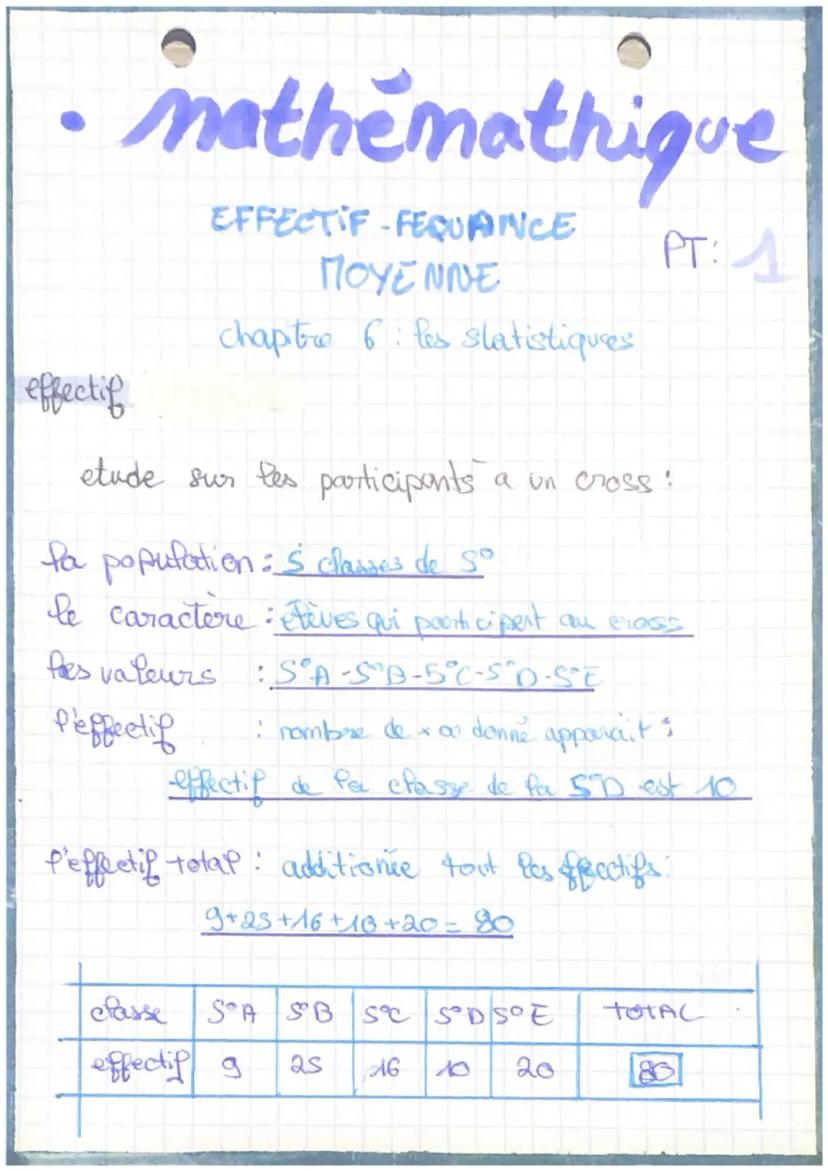 • mathémathique
EFFECTIF - FEQUANCE
PT: 1
MOYENNE
chapitre 6 : les statistiques
effectif
etude sur les participants a un cross :
la population : 5 classes de 5°
le caractère : élèves qui participent au cross
les valeurs : 5°A - 5°B - 5°C - 5°D - 5°E
l'effectif : nombre de x a donné apparait :
effectif de la classe de la 5°D est 10
l'effectif total : additionée tout les effectifs :
9+25+16+10+20 = 80
classe 5°A 5°B 5°C 5°D 5°E TOTAL
effectif 9 25 16 10 20 80